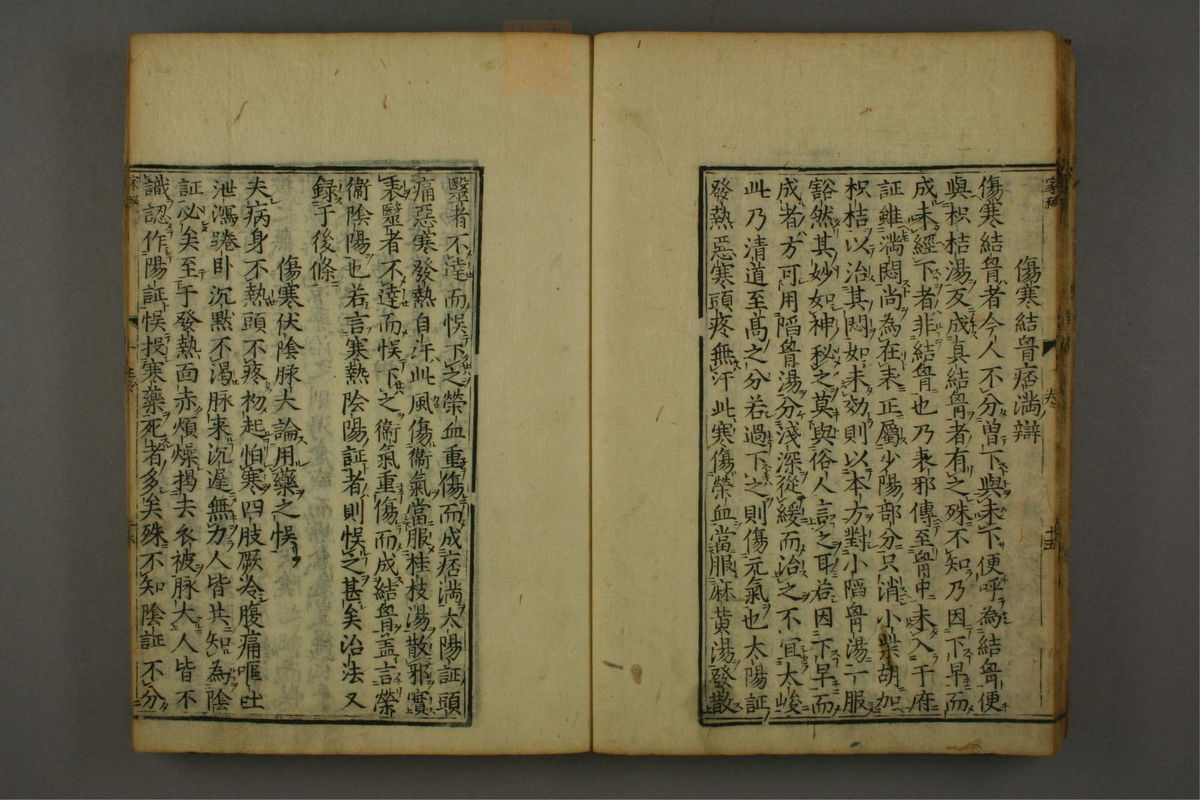 傷寒結胷痞滿辯
傷寒結胷者今人不分曽下與未下便呼為結胷便
與枳桔湯反成真結胷者有之殊不知乃因下早而
成未經下者非結胷也乃表邪傳至胷中未入于府
証雖滿悶尚為在表正屬少陽部分只消小柴胡加
枳桔以治其悶如未効則以本方對小陷胷湯一服
豁然其妙如神秘之莫與俗人言之耳若因下早而
成者方可用陷胷湯分淺深從緩而治之不宜太峻
此乃清道至髙之分若過下之則傷元氣也太陽証
發熱惡寒頭疼無汗此寒傷榮血當服麻黄湯發散
毉者不達而悞下之榮血重傷而成痞滿太陽証頭
痛惡寒發熱自汗此風傷衞氣當服桂枝湯散邪實
表毉者不達而悞下之衞氣重傷而成結胷盖言榮
衞陰陽也若言寒熱陰陽証者則悞之甚矣治法又
録于後條
傷寒伏陰脉大論用藥之悞
夫病身不熱頭不疼初起怕寒四肢厥冷腹痛嘔吐
泄瀉踡卧沉黙不渴脉来沉遲無力人皆共知為陰
証必矣至于發熱面赤煩燥揭去衣被脉大人皆不
識認作陽証悞投寒藥死者多矣殊不知陰証不分